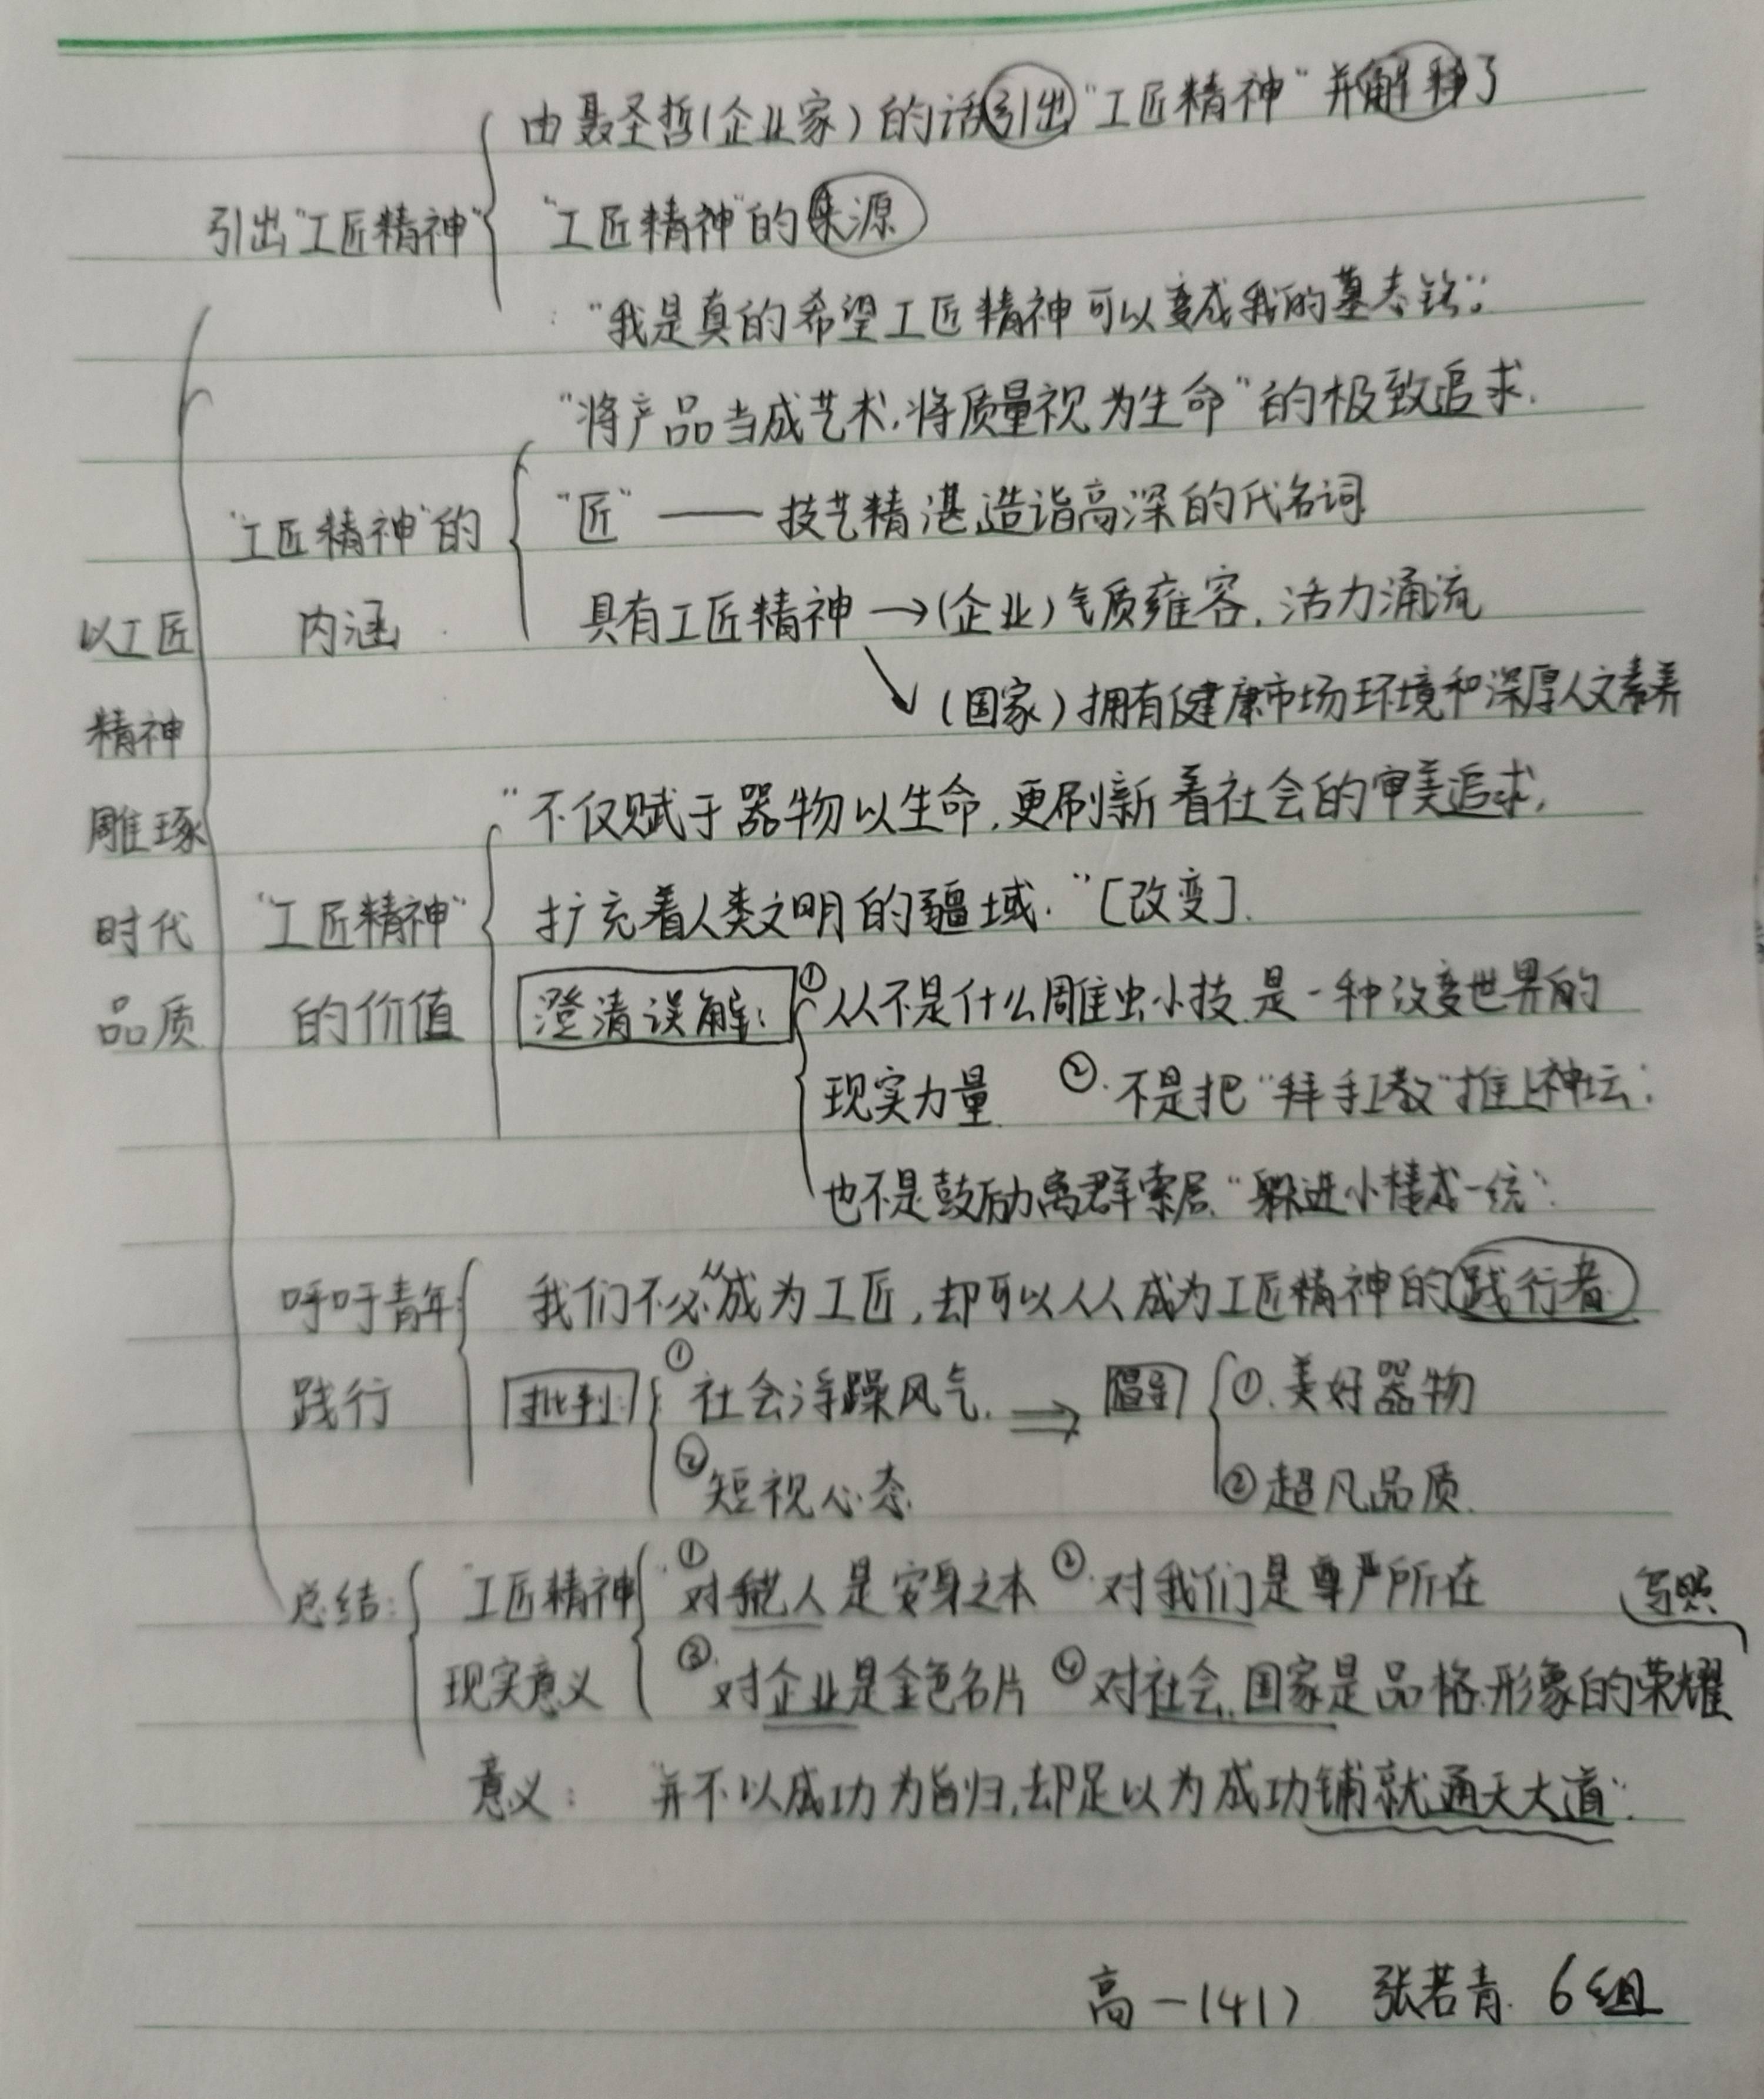 由聂圣哲(企业家)的话引出“工匠精神”并解释了
引出“工匠精神” “工匠精神”的来源
“我是真的希望工匠精神可以变成我的墓志铭”.
“将产品当成艺术,将质量视为生命”的极致追求.
“工匠精神”的 “匠”——技艺精湛、造诣高深的代名词
以工匠 内涵 具有工匠精神→(企业)气质雍容,活力涌流
精神 (国家)拥有健康市场环境和深厚人文素养
雕琢 “不仅赋于器物以生命,更刷新着社会的审美追求,
时代 “工匠精神” 扩充着人类文明的疆域.”[改变].
品质 的价值 澄清误解: ①从不是什么雕虫小技.是一种改变世界的
现实力量 ②.不是把“拜手工教”推上神坛;
也不是鼓励离群索居.“躲进小楼成一统”.
呼吁青年 我们不必成为工匠,却可以人人成为工匠精神的践行者
践行 批判: ①社会浮躁风气. ⇒ 倡导 ①.美好器物
②短视心态. ②超凡品质.
总结: “工匠精神” ①对手艺人是安身之本 ②.对我们是尊严所在 写照
现实意义 ③.对企业是金色名片 ④对社会、国家是品格.形象的荣耀
意义: “并不以成功为旨归,却足以为成功铺就通天大道”.
高一(41) 张若青. 6组